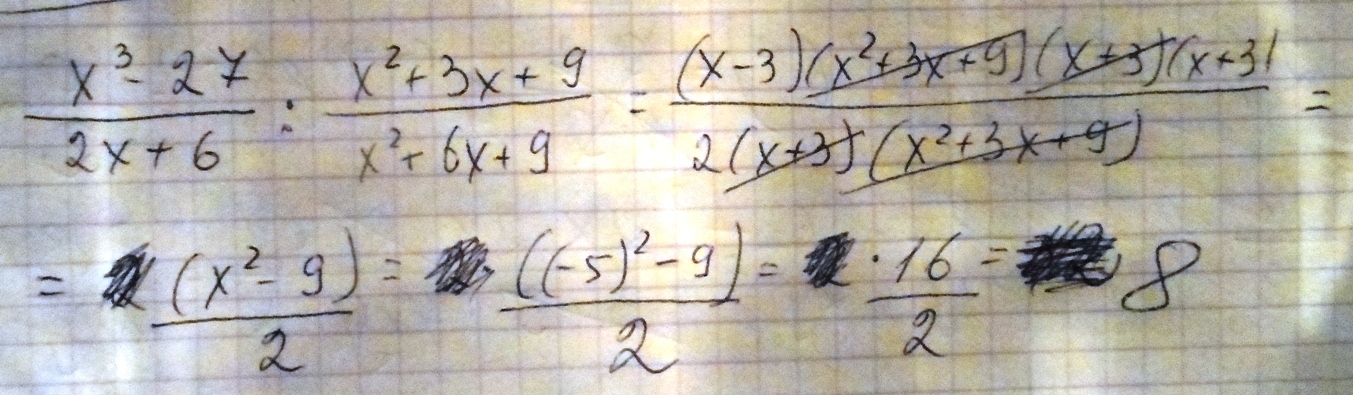 (x³ - 27)/(2x + 6) : (x² + 3x + 9)/(x² + 6x + 9) = ((x - 3)(x² + 3x + 9)(x + 3)(x + 3))/(2(x + 3)(x² + 3x + 9)) =
= (x² - 9)/2 = ((-5)² - 9)/2 = · 16/2 = 8